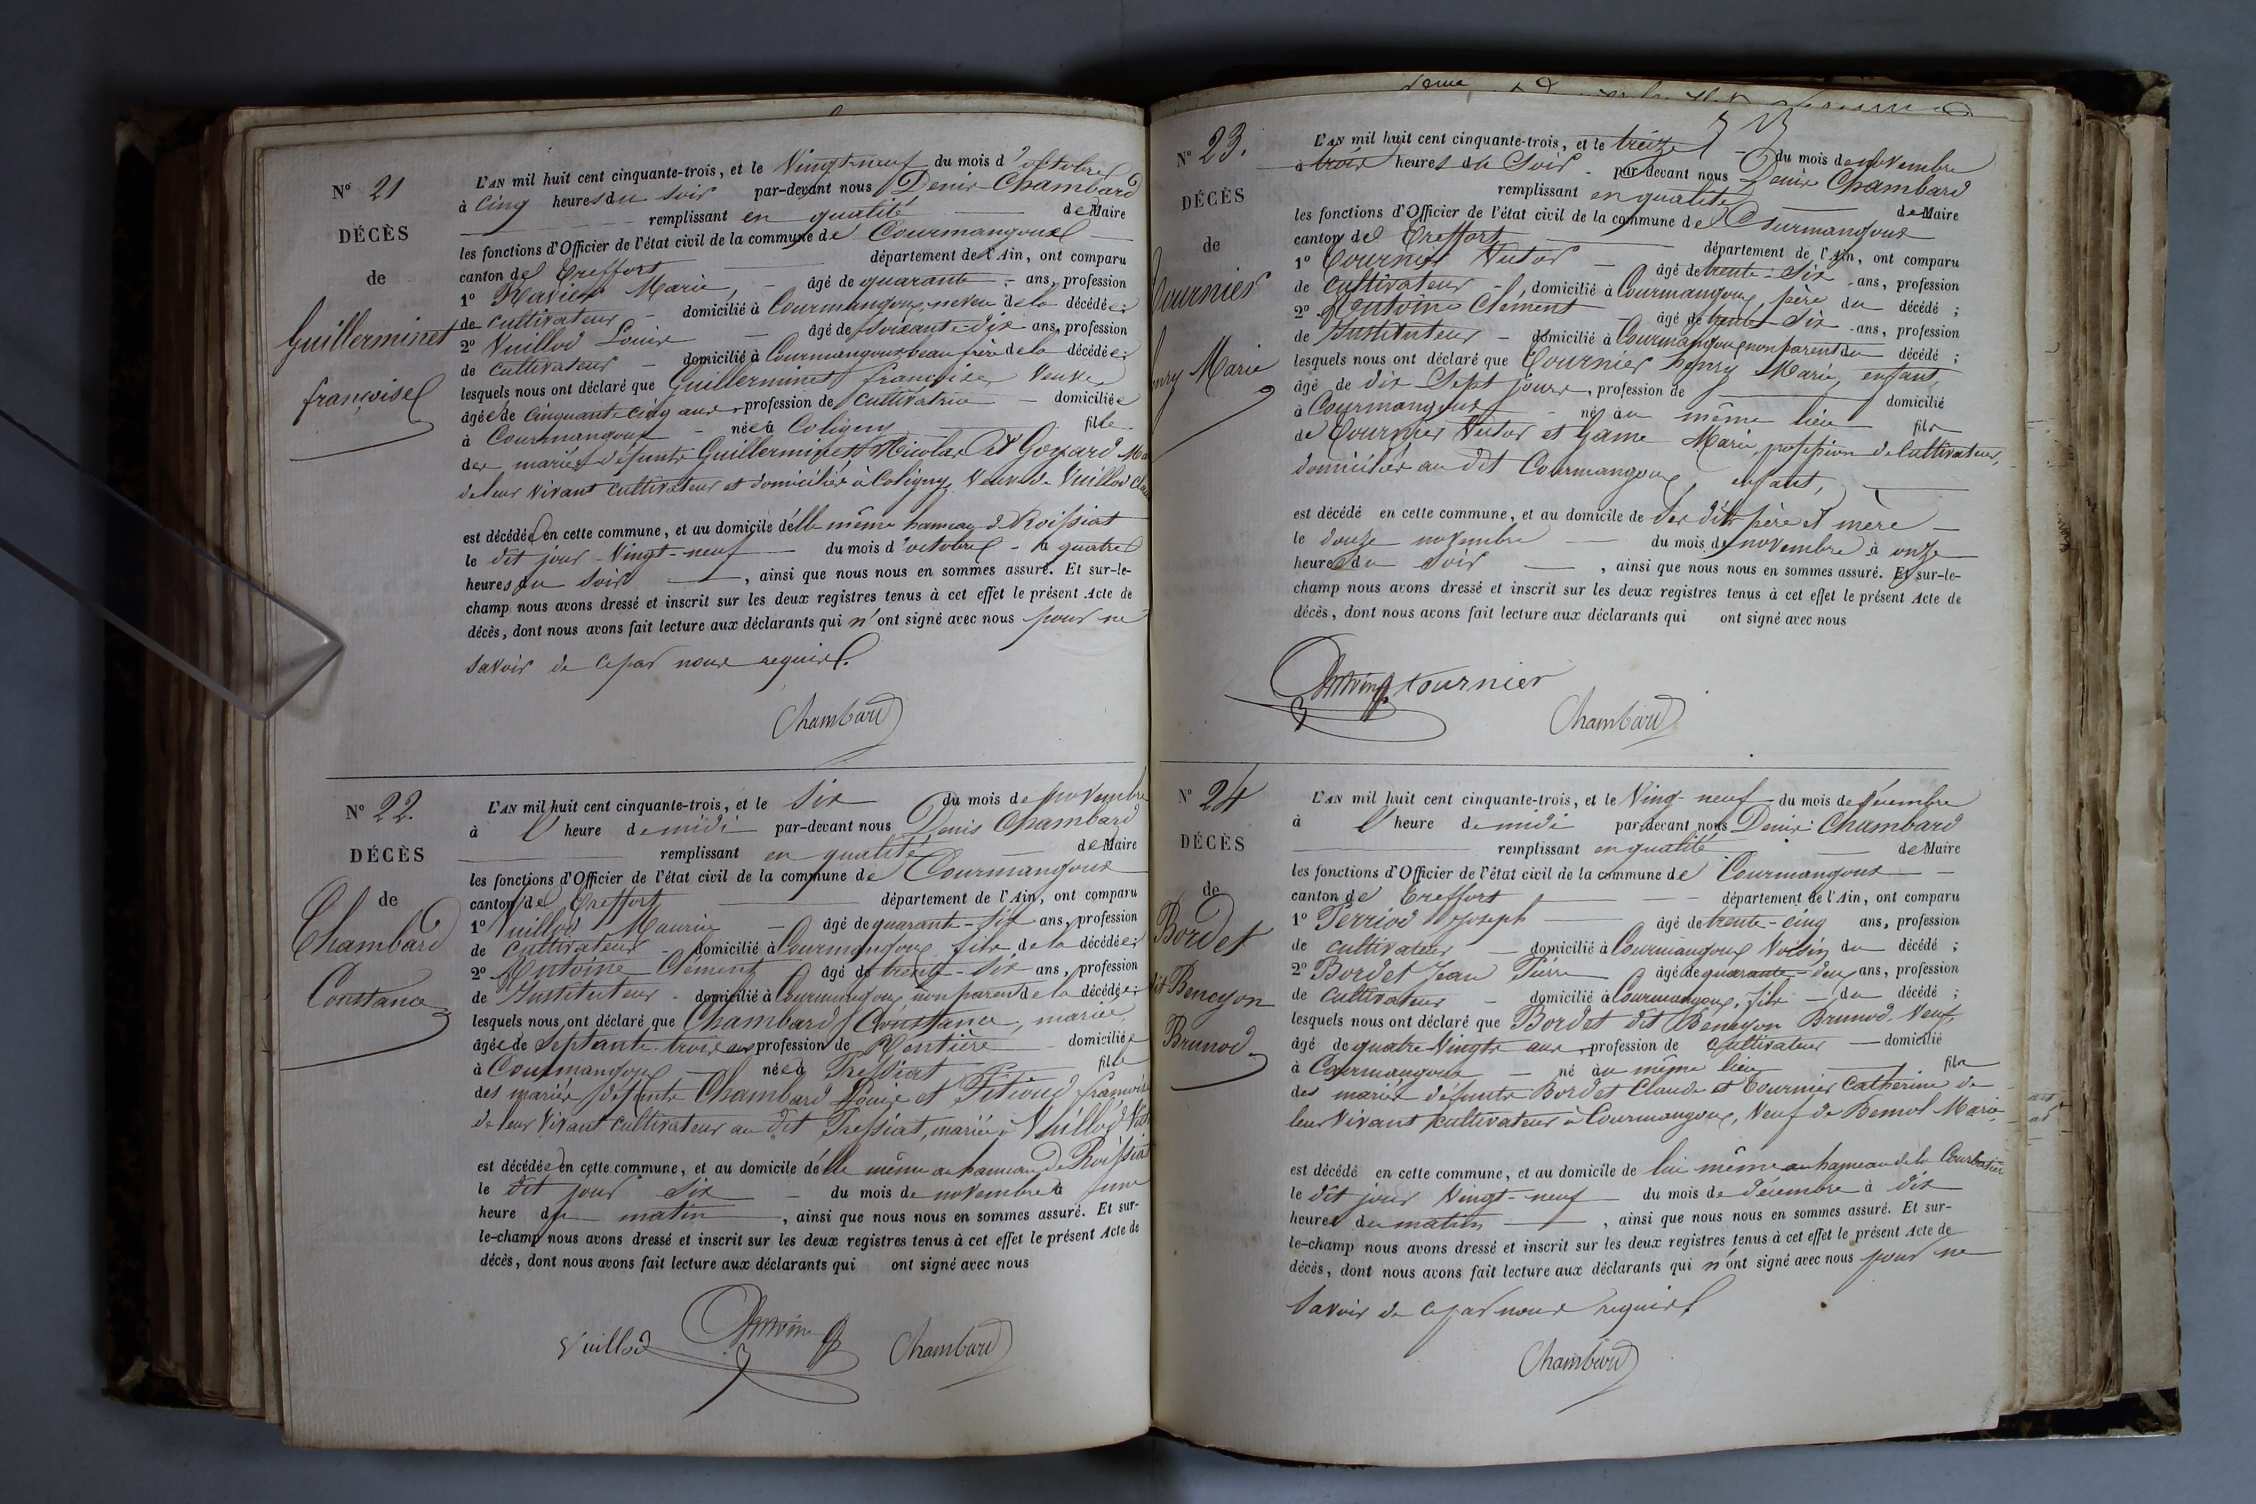 N° 21
DÉCÈS
de
Guillerminet
françoise
L'AN mil huit cent cinquante-trois, et le Vingt-neuf du mois d'octobre
à Cinq heures du soir par-devant nous Denis Chambard
remplissant en qualité de Maire
les fonctions d'Officier de l'état civil de la commune de Courmangoux
canton de Treffort département de l'Ain, ont comparu
1° Marie, âgé de quarante ans, profession
de cultivateur domicilié à Courmangoux neveu de la décédée;
2° Vuillod Louis âgé de soixante-dix ans, profession
de cultivateur domicilié à Courmangoux beau frère de la décédée;
lesquels nous ont déclaré que Guillerminet françoise Veuve
âgée de cinquante-cinq ans profession de cultivatrice domiciliée
à Courmangoux née à Coligny fille
des mariés défunts Guillerminet Nicolas et
de leur vivant cultivateurs et domiciliés à Coligny Veuve de Vuillod
est décédée en cette commune, et au domicile d'elle même hameau de Roissiat
le dit jour Vingt-neuf du mois d'octobre à quatre
heures du soir, ainsi que nous nous en sommes assuré. Et sur-le-
champ nous avons dressé et inscrit sur les deux registres tenus à cet effet le présent Acte de
décès, dont nous avons fait lecture aux déclarants qui n'ont signé avec nous pour ne
savoir de ce par nous requis.
Chambard
N° 22.
DÉCÈS
de
Chambard
Constance
L'AN mil huit cent cinquante-trois, et le Six du mois de novembre
à l' heure de midi par-devant nous Denis Chambard
remplissant en qualité de Maire
les fonctions d'Officier de l'état civil de la commune de Courmangoux
canton de Treffort département de l'Ain, ont comparu
1° Vuillod Maurice âgé de quarante-six ans, profession
de cultivateur domicilié à Courmangoux fils de la décédée;
2° Antoine Clément âgé de trente-six ans, profession
de Instituteur domicilié à Courmangoux non parent de la décédée;
lesquels nous ont déclaré que Chambard Constance, mariée
âgée de Septante-trois ans profession de Rentière domiciliée
à Courmangoux née à Tressiat fille
des mariés défunts Chambard Louis et
de leur vivant cultivateurs au dit Tressiat, mariée à Vuillod
est décédée en cette commune, et au domicile d'elle même au hameau de Roissiat
le dit jour six du mois de novembre à une
heure du matin, ainsi que nous nous en sommes assuré. Et sur-
le-champ nous avons dressé et inscrit sur les deux registres tenus à cet effet le présent Acte de
décès, dont nous avons fait lecture aux déclarants qui ont signé avec nous
Vuillod Antoine Chambard
N° 23.
DÉCÈS
de
Tournier
henry Marie
L'AN mil huit cent cinquante-trois, et le treize du mois de novembre
à trois heures du Soir par devant nous Denis Chambard
remplissant en qualité de Maire
les fonctions d'Officier de l'état civil de la commune de Courmangoux
canton de Treffort département de l'Ain, ont comparu
1° Tournier Victor âgé de trente-Six ans, profession
de cultivateur, domicilié à Courmangoux père du décédé;
2° Antoine Clément âgé de trente Six ans, profession
de Instituteur domicilié à Courmangoux non parent du décédé;
lesquels nous ont déclaré que Tournier henry Marie, enfant,
âgé de dix Sept jours, profession de domicilié
à Courmangoux né au même lieu fils
de Tournier Victor et Game Marie, profession de Cultivateurs,
domiciliés au dit Courmangoux, enfant,
est décédé en cette commune, et au domicile de des dits père et mère
le douze novembre du mois de novembre à onze
heures du soir, ainsi que nous nous en sommes assuré. Et sur-le-
champ nous avons dressé et inscrit sur les deux registres tenus à cet effet le présent Acte de
décès, dont nous avons fait lecture aux déclarants qui ont signé avec nous
Antoine tournier
Chambard
N° 24
DÉCÈS
de
Bordet
dit Bencyon
Brunod
L'AN mil huit cent cinquante-trois, et le Ving-neuf du mois de décembre
à l' heure de midi par devant nous Denis Chambard
remplissant en qualité de Maire
les fonctions d'Officier de l'état civil de la commune de Courmangoux
canton de Treffort département de l'Ain, ont comparu
1° Perriod Joseph âgé de trente-cinq ans, profession
de cultivateur domicilié à Courmangoux Voisin du décédé;
2° Bordet Jean Pierre âgé de quarante-deux ans, profession
de cultivateur domicilié à Courmangoux, fils du décédé;
lesquels nous ont déclaré que Bordet dit Bencyon Brunod, Veuf,
âgé de quatre Vingts ans profession de cultivateur domicilié
à Courmangoux né au même lieu fils
des mariés défunts Bordet Claude et Tournier Catherine de
leur Vivant cultivateurs à Courmangoux, Veuf de Marie
est décédé en cette commune, et au domicile de lui même au hameau de la
le dit jour Vingt-neuf du mois de décembre à dix
heures du matin, ainsi que nous nous en sommes assuré. Et sur-
le-champ nous avons dressé et inscrit sur les deux registres tenus à cet effet le présent Acte de
décès, dont nous avons fait lecture aux déclarants qui n'ont signé avec nous pour ne
Savoir de ce par nous requis
Chambard